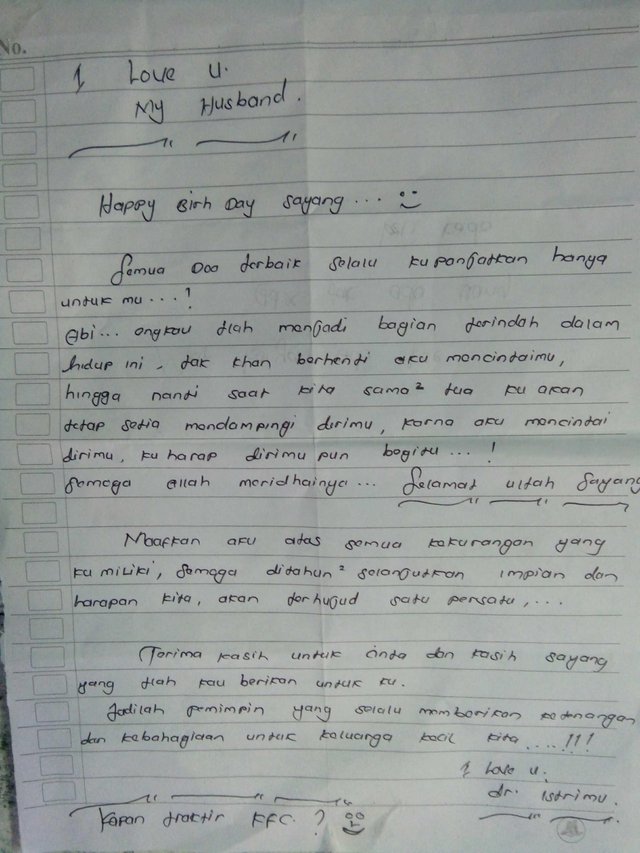 No.
I Love U.
My Husband.
Happy Birh Day sayang... :)
Semua Doa terbaik selalu ku panjatkan hanya
untuk mu...!
Abi... engkau tlah menjadi bagian terindah dalam
hidup ini, tak khan berhenti aku mencintaimu,
hingga nanti saat kita sama² tua ku akan
tetap setia mendampingi dirimu, karna aku mencintai
dirimu, ku harap dirimu pun begitu...!
Semoga Allah meridhainya... Selamat ultah Sayang
Maafkan aku atas semua kekurangan yang
ku miliki, Semoga ditahun² selanjutkan impian dan
harapan kita, akan terhujud satu persatu,...
Terima kasih untuk cinta dan kasih sayang
yang tlah kau berikan untuk ku.
Jadilah pemimpin yang selalu memberikan ketenangan
dan kebahagiaan untuk keluarga kecil kita....!!!
I Love U.
dr. Istrimu.
Kapan traktir KFC.?